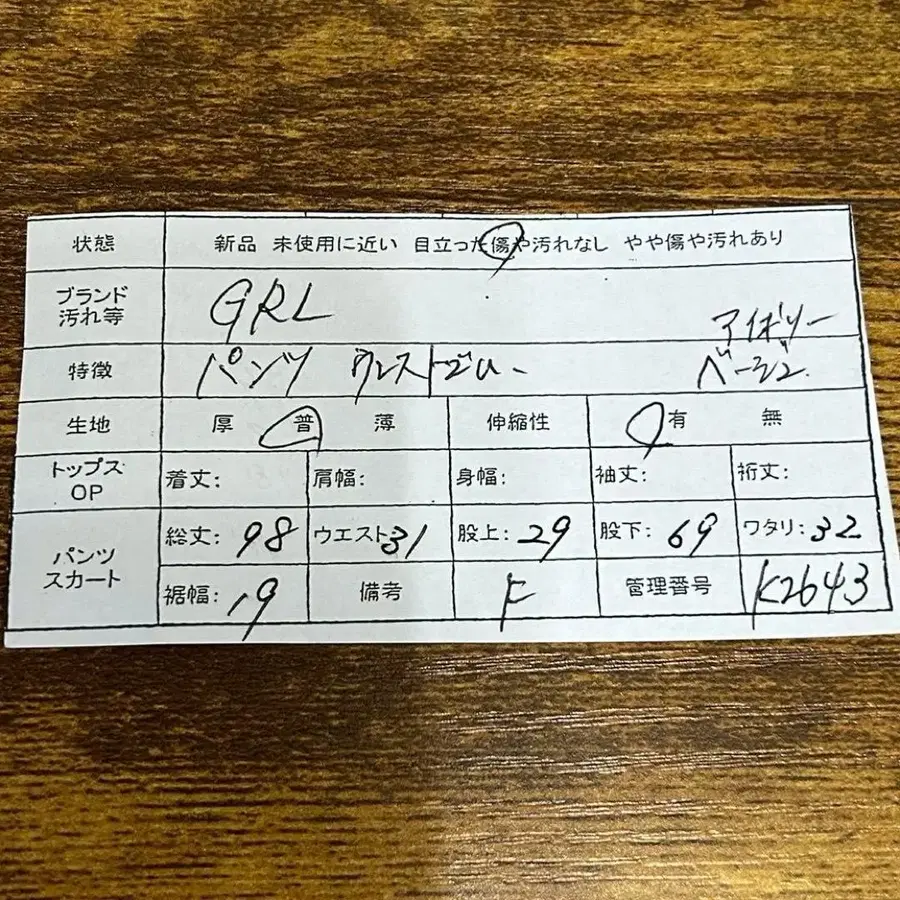 状態 新品 未使用に近い 目立った傷や汚れなし やや傷や汚れあり
ブランド 汚れ等 GRL アイボリー
特徴 パンツ ウエストゴム ベージュ
生地 厚 普 薄 伸縮性 有 無
トップス OP 着丈: 肩幅: 身幅: 袖丈: 裄丈:
パンツ スカート 総丈: 98 ウエスト 31 股上: 29 股下: 69 ワタリ: 32
裾幅: 19 備考 F 管理番号 K2643